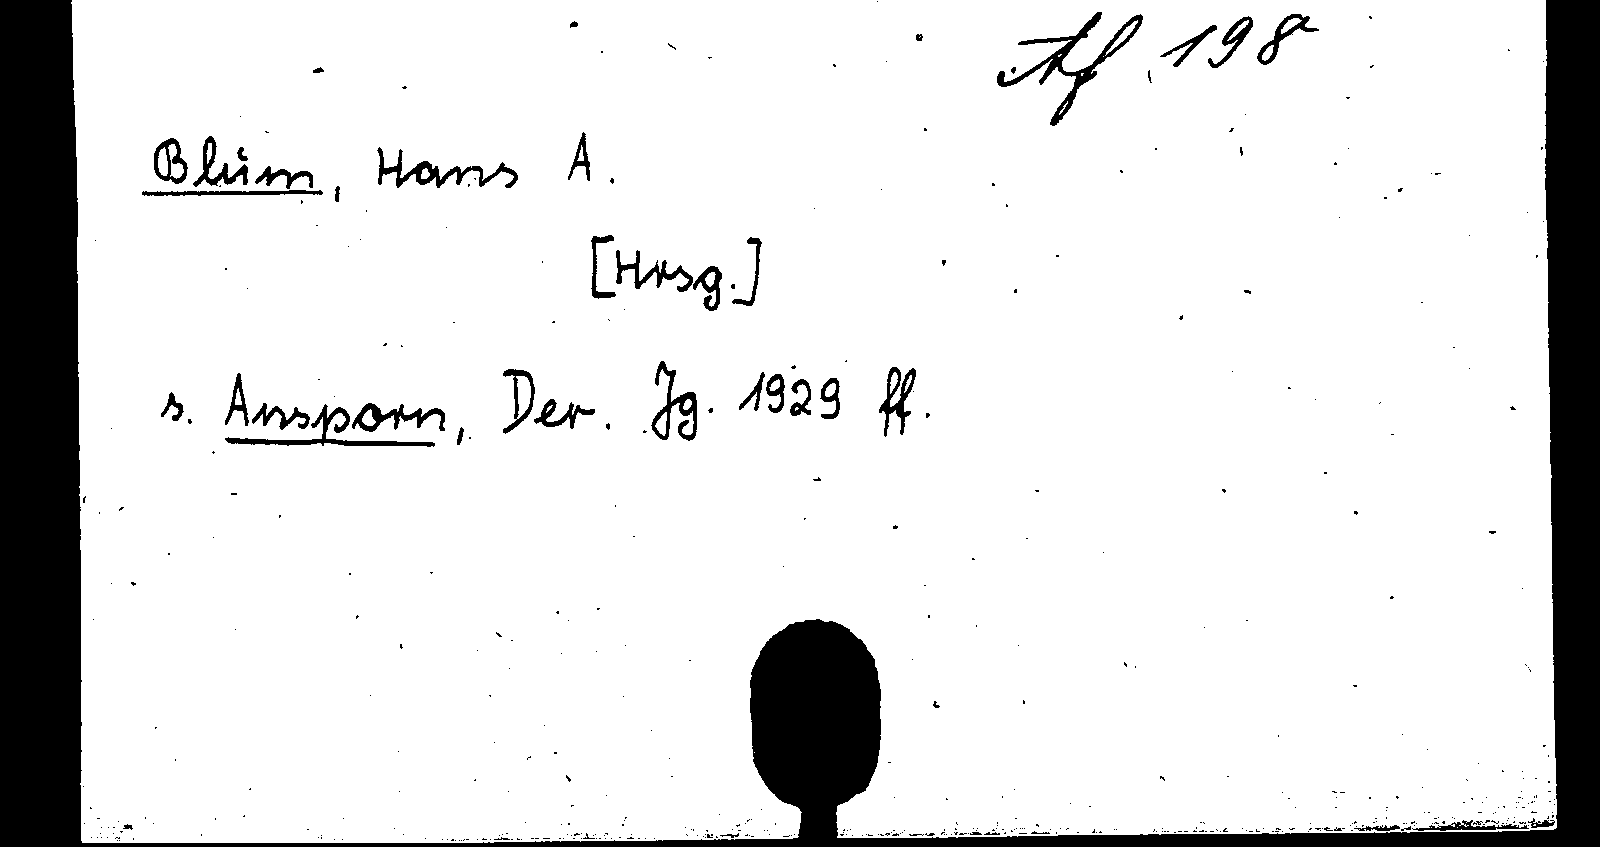 Af 198
Blüm, Hans A.
[Hrsg.]
s. Ansporn, Der. Jg. 1929 ff.